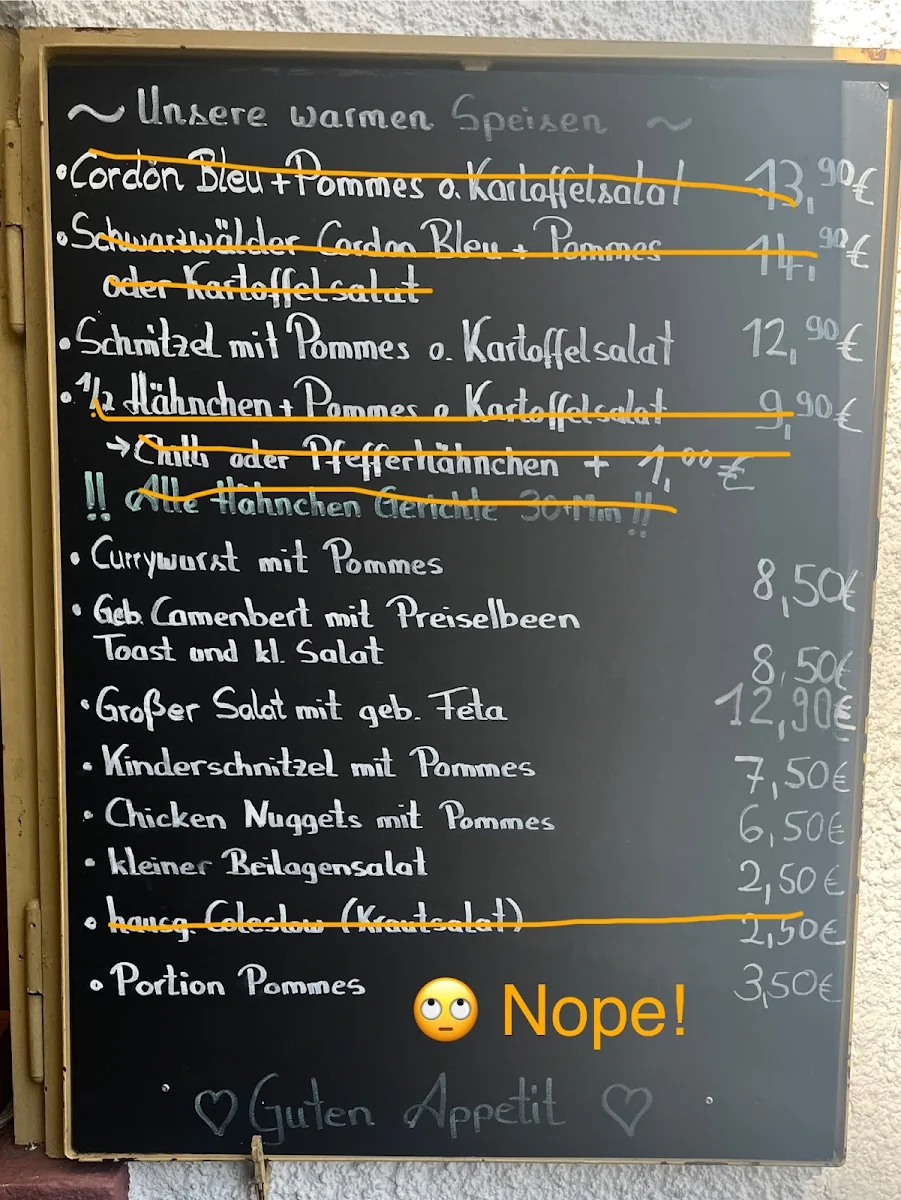 ~ Unsere warmen Speisen ~
• Cordon Bleu + Pommes o. Kartoffelsalat 13,90€
• Schwarzwälder Cordon Bleu + Pommes 14,90€
oder Kartoffelsalat
• Schnitzel mit Pommes o. Kartoffelsalat 12,90€
• 1/2 Hähnchen + Pommes o. Kartoffelsalat 9,90€
→ Chilli oder Pfefferhähnchen + 1,00€
!! Alle Hähnchen Gerichte 30+Min !!
• Currywurst mit Pommes 8,50€
• Geb. Camenbert mit Preiselbeen
Toast und kl. Salat 8,50€
• Großer Salat mit geb. Feta 12,90€
• Kinderschnitzel mit Pommes 7,50€
• Chicken Nuggets mit Pommes 6,50€
• kleiner Beilagensalat 2,50€
• hausg. Coleslow (Krautsalat) 2,50€
• Portion Pommes 3,50€
🙄 Nope!
♡ Guten Appetit ♡